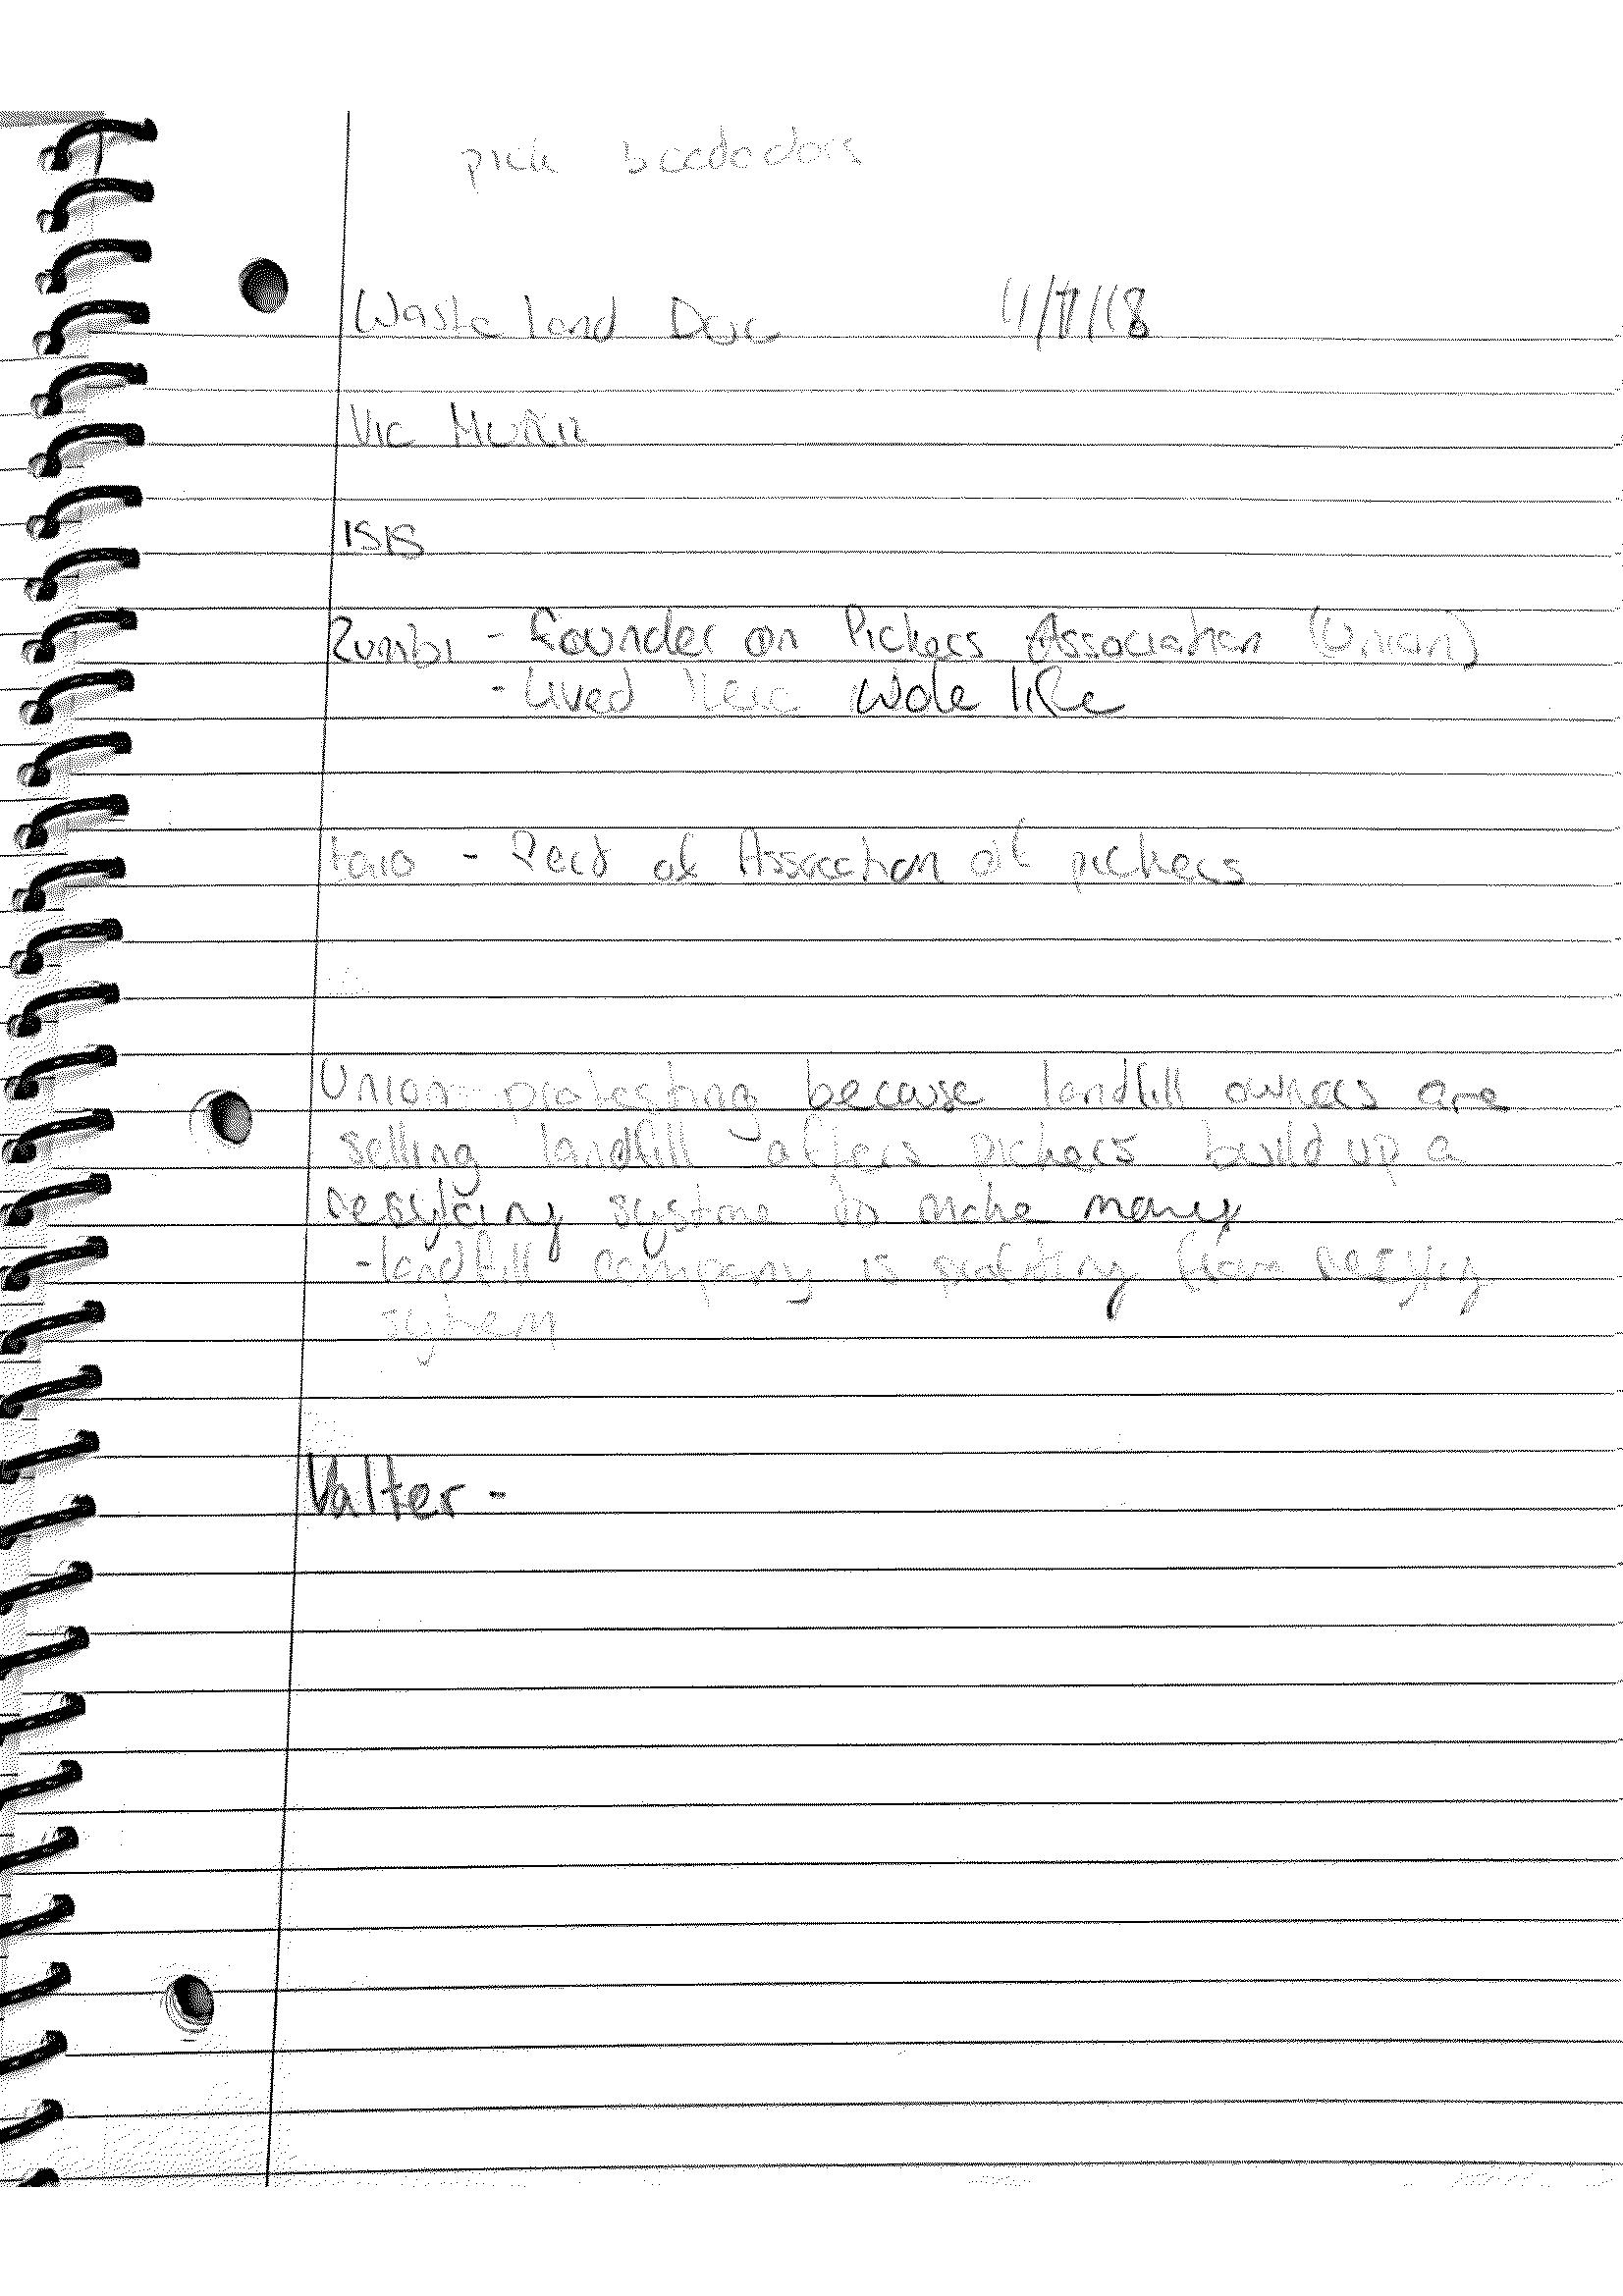 pick
Waste land Doc 11/7/18
Vic Muniz
ISIS
Zumbi - founder on Pickers Association (Union)
- Lived here wole life
taio - Part of Association of pickers
Union protesting because landfill owners are
selling landfill afters pickers build up a
system to make money
- landfill company is from
system
Valter -